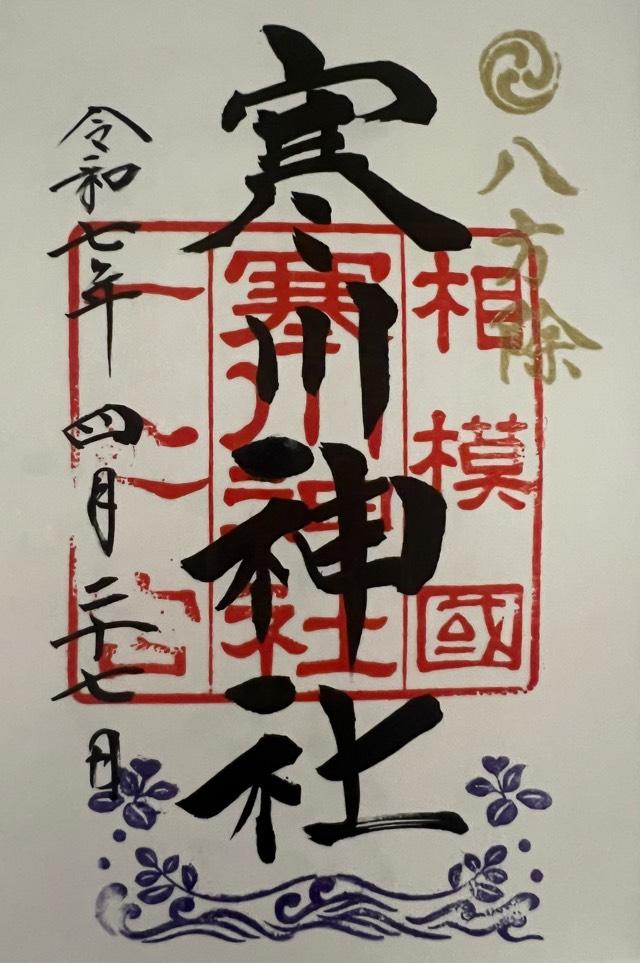 八方除
相模國
寒川神社
寒川神社
一之宮
令和七年 四月二十七日